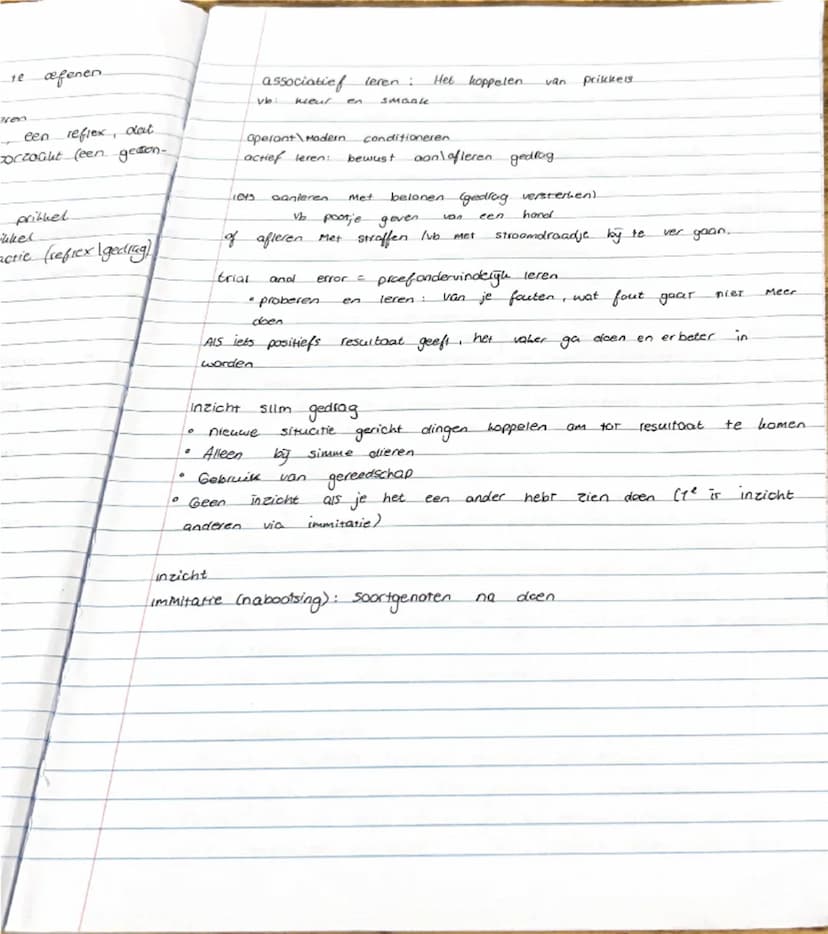 te oefenen
een reflex, dat
prikkel
actie (reflex\gedrag)
associatief leren: Het koppelen van prikkels
vb: kleur en smaak
operant\Modern conditioneren
actief leren: bewust aan\afleren gedrag
iets aanleren met belonen (gedrag versterken)
vb pootje geven van een hond
of afleren met straffen (vb met stroomdraadje bij te ver gaan.
trial and error = proefondervindelijk leren
• proberen en leren: van je fouten, wat fout gaat niet meer
doen
Als iets positiefs resultaat geeft, het vaker ga doen en er beter in
worden
inzicht slim gedrag
• nieuwe situatie gericht dingen koppelen om tot resultaat te komen
• Alleen bij slimme dieren
• Gebruik van gereedschap
• Geen inzicht als je het een ander hebt zien doen (1e is inzicht
anderen via immitatie)
inzicht
immitatie (nabootsing): soortgenoten na doen